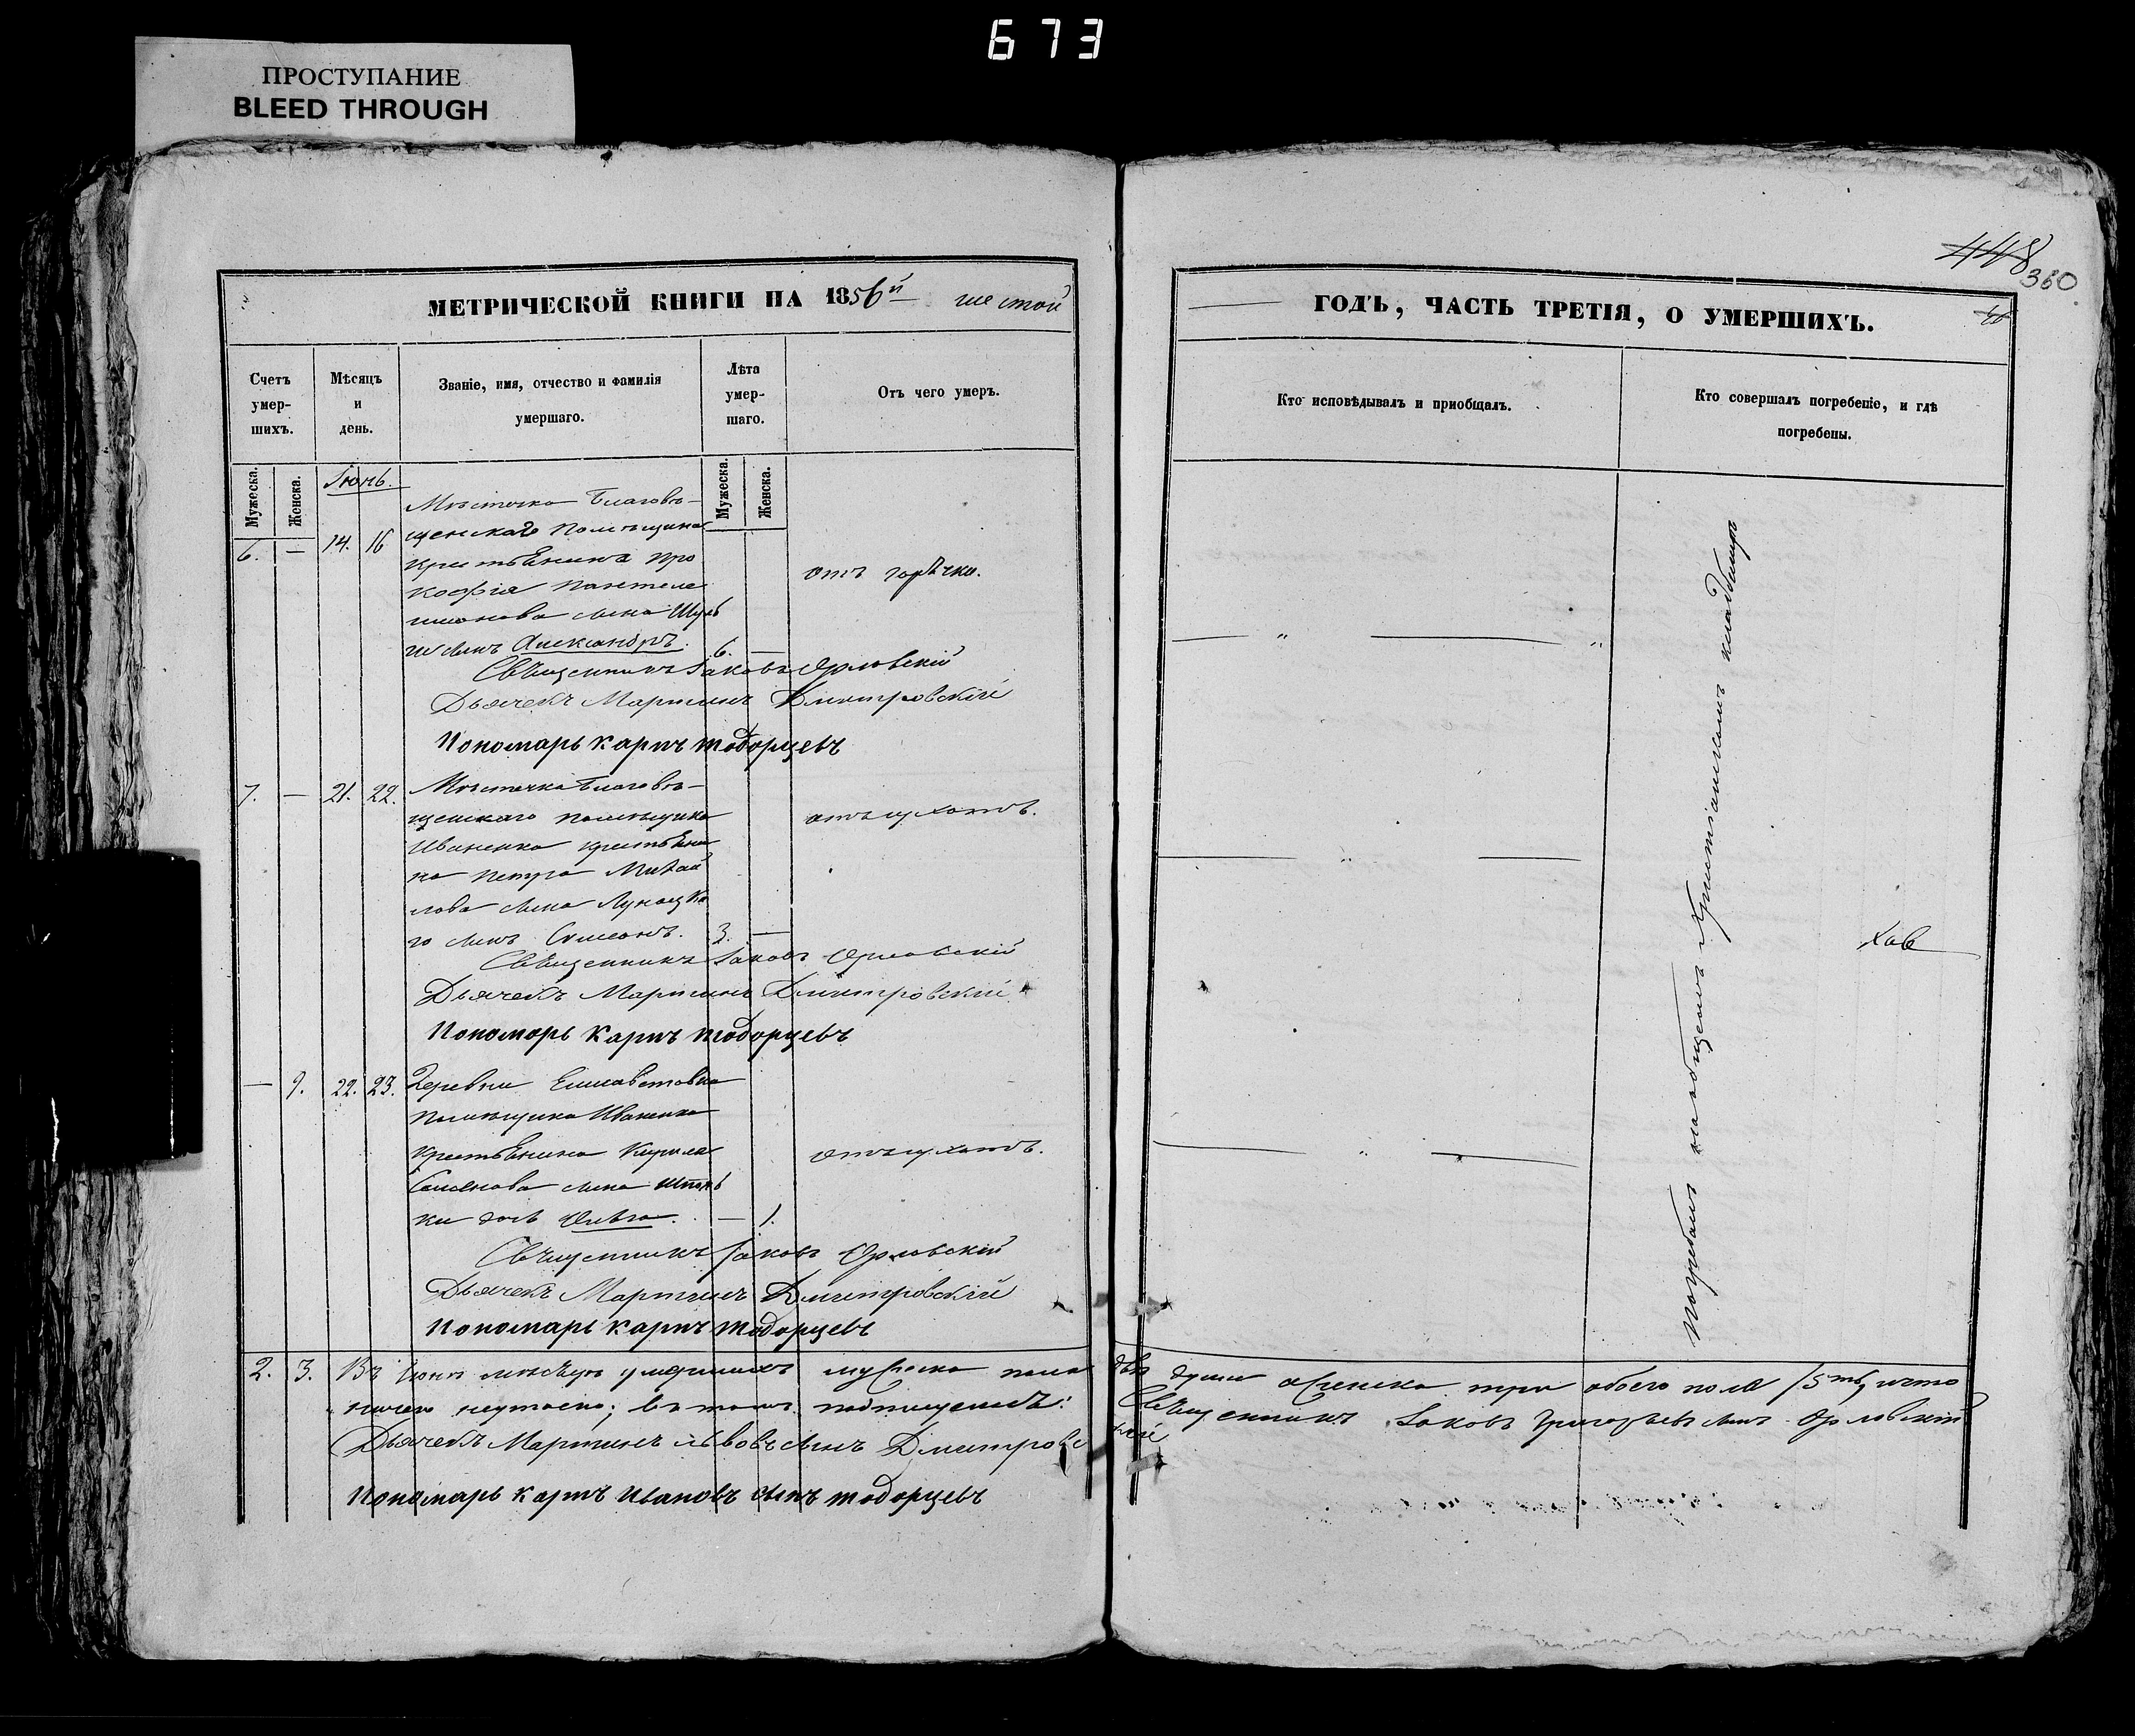 673
ПРОСТУПАНИЕ
BLEED THROUGH
448
360
МЕТРИЧЕСКОЙ КНИГИ НА 1856й шестой
ГОДЪ, ЧАСТЬ ТРЕТІЯ, О УМЕРШИХЪ.
Счетъ умер-шихъ.
Мѣсяцъ и день.
Званіе, имя, отчество и фамилія умершаго.
Лѣта умер-шаго.
Отъ чего умеръ.
Кто исповѣдывалъ и приобщалъ.
Кто совершалъ погребеніе, и гдѣ погребены.
Мужеска.
Женска.
Іюнь.
Мужеска.
Женска.
6. — 14. 16
Мѣстечка Благовѣ-
щенскаго помѣщика
крестьянина Про
кофія Пантеле
имонова сына
сынъ Александръ. 6. —
отъ горячки.
Священникъ Іаковъ Орловскій
Дьячекъ Мартинъ Дмитровскій
Пономарь Карпъ Тодорцевъ
7. — 21. 22.
Мѣстечка Благовѣ-
щенскаго помѣщика
Иваненка крестьяни
на Петра Михай
лова сына Луцка
го сынъ Симеонъ. 3. —
Священникъ Іаковъ Орловскій
Дьячекъ Мартинъ Дмитровскій
Пономарь Карпъ Тодорцевъ
— 9. 22. 23.
Деревни Елисаветовки
помѣщика Иваненка
крестьянина Кирила
Семенова сына
ки дочь — 1.
Священникъ Іаковъ Орловскій
Дьячекъ Мартинъ Дмитровскій
Пономарь Карпъ Тодорцевъ
погребены на общемъ христіанскомъ кладбищѣ
2. 3. Въ Іюнѣ мѣсяцѣ умершихъ мужеска пола двѣ души женска три обоего пола 5ть, что
ничего неутаено; въ томъ подписуемся: Священникъ Іаковъ Григорьевъ сынъ Орловскій
Дьячекъ Мартинъ Львовъ сынъ Дмитровскій
Пономарь Карпъ Ивановъ сынъ Тодорцевъ